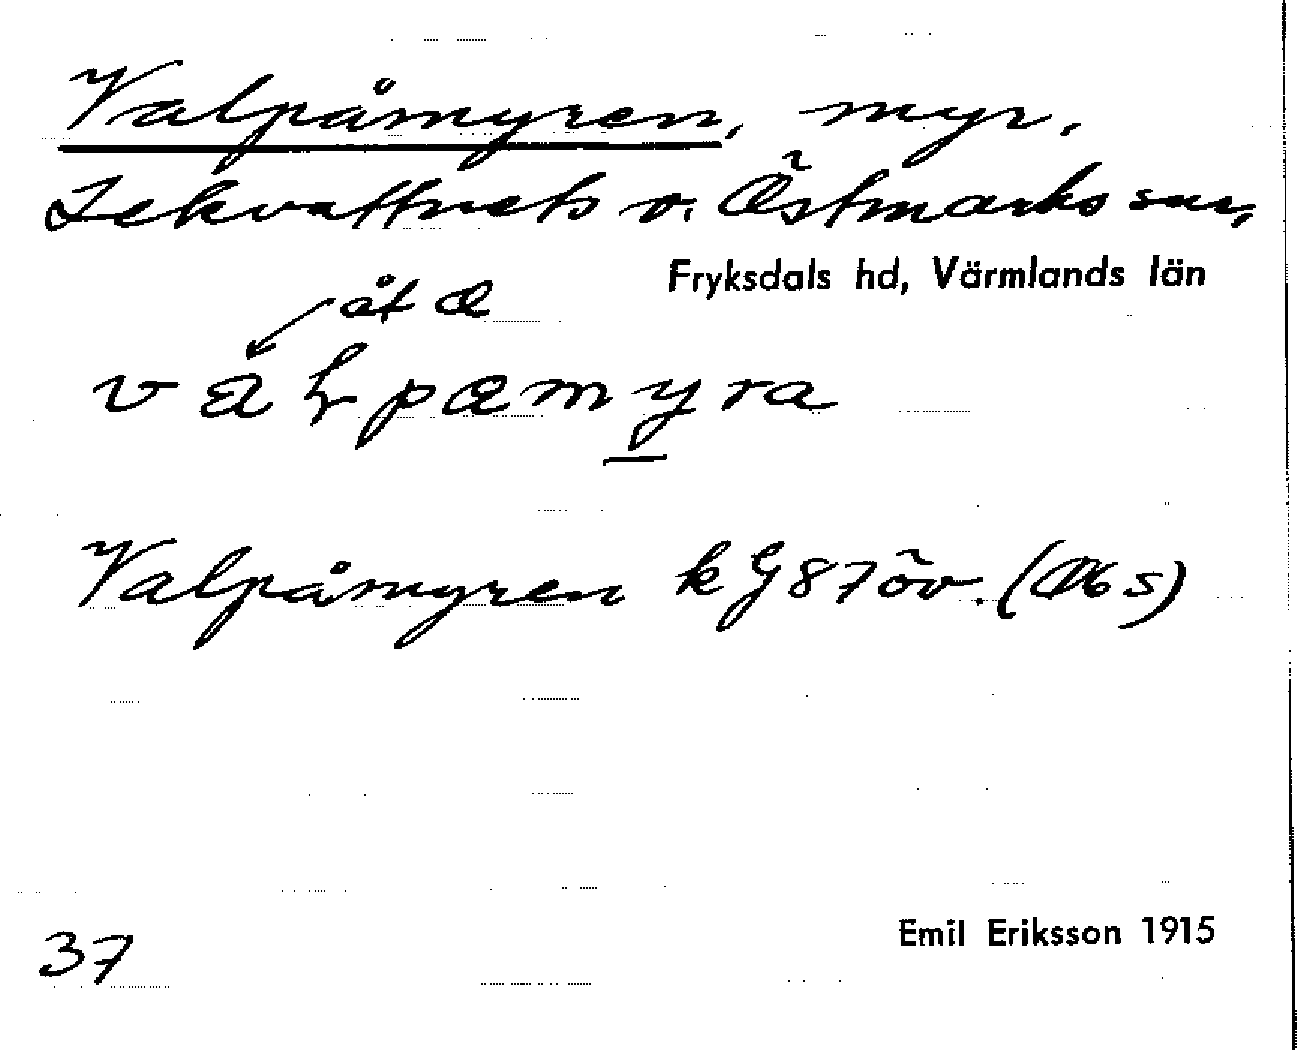 Valpåmyren, myr.
Lekvattnets o. Östmarks snr,
Fryksdals hd, Värmlands län
åt a
Valpåmyren k G 87 öv.
37
Emil Eriksson 1915